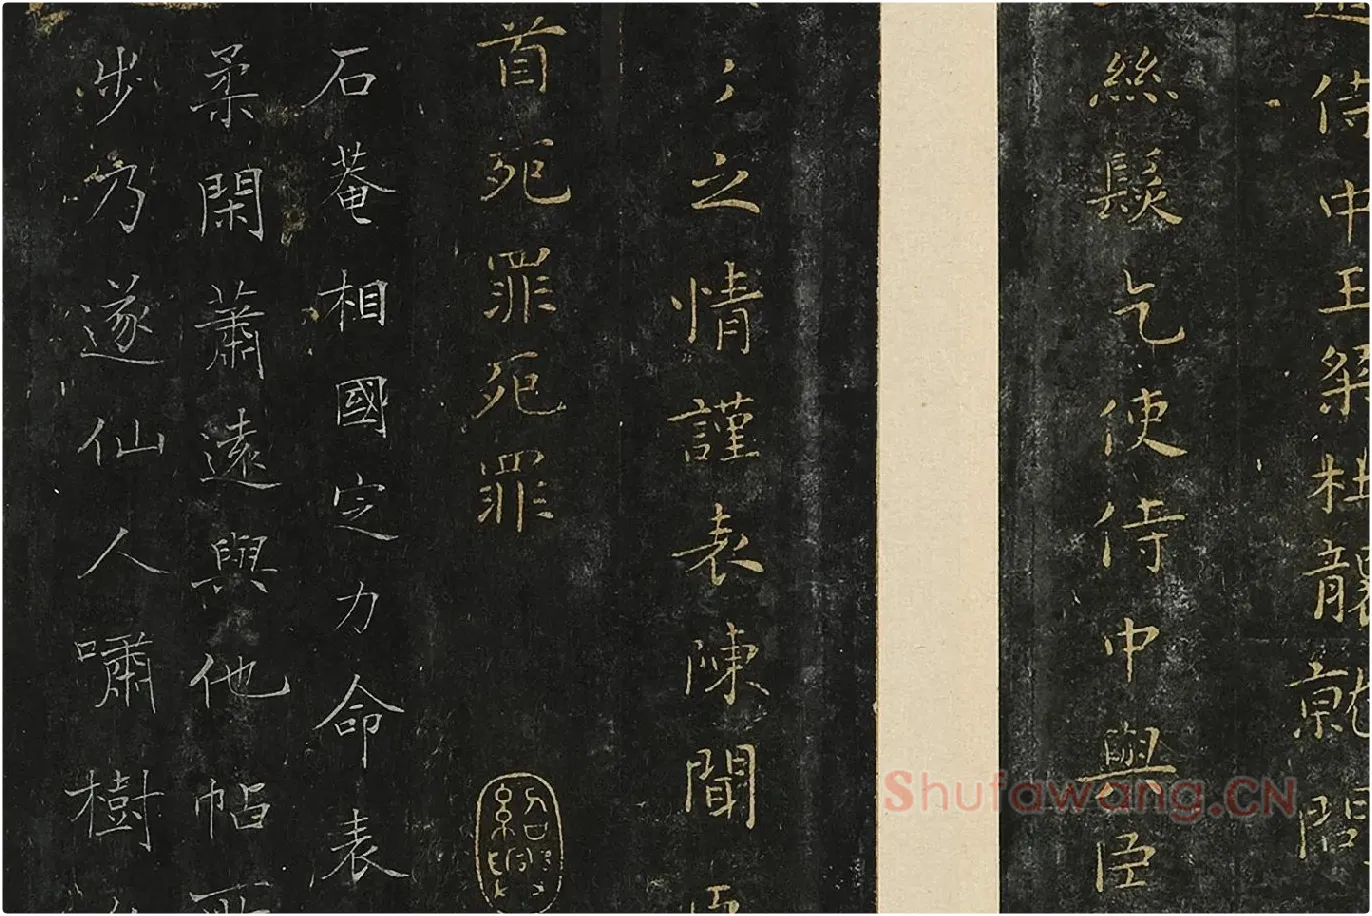 侍中王粲杜襲就問
絲髮乞使侍中與臣
之情謹表陳聞
首死罪死罪
紹興
石菴相國定力命表
柔閑蕭遠與他帖
步方遂仙人嘯樹
Shufawang.CN